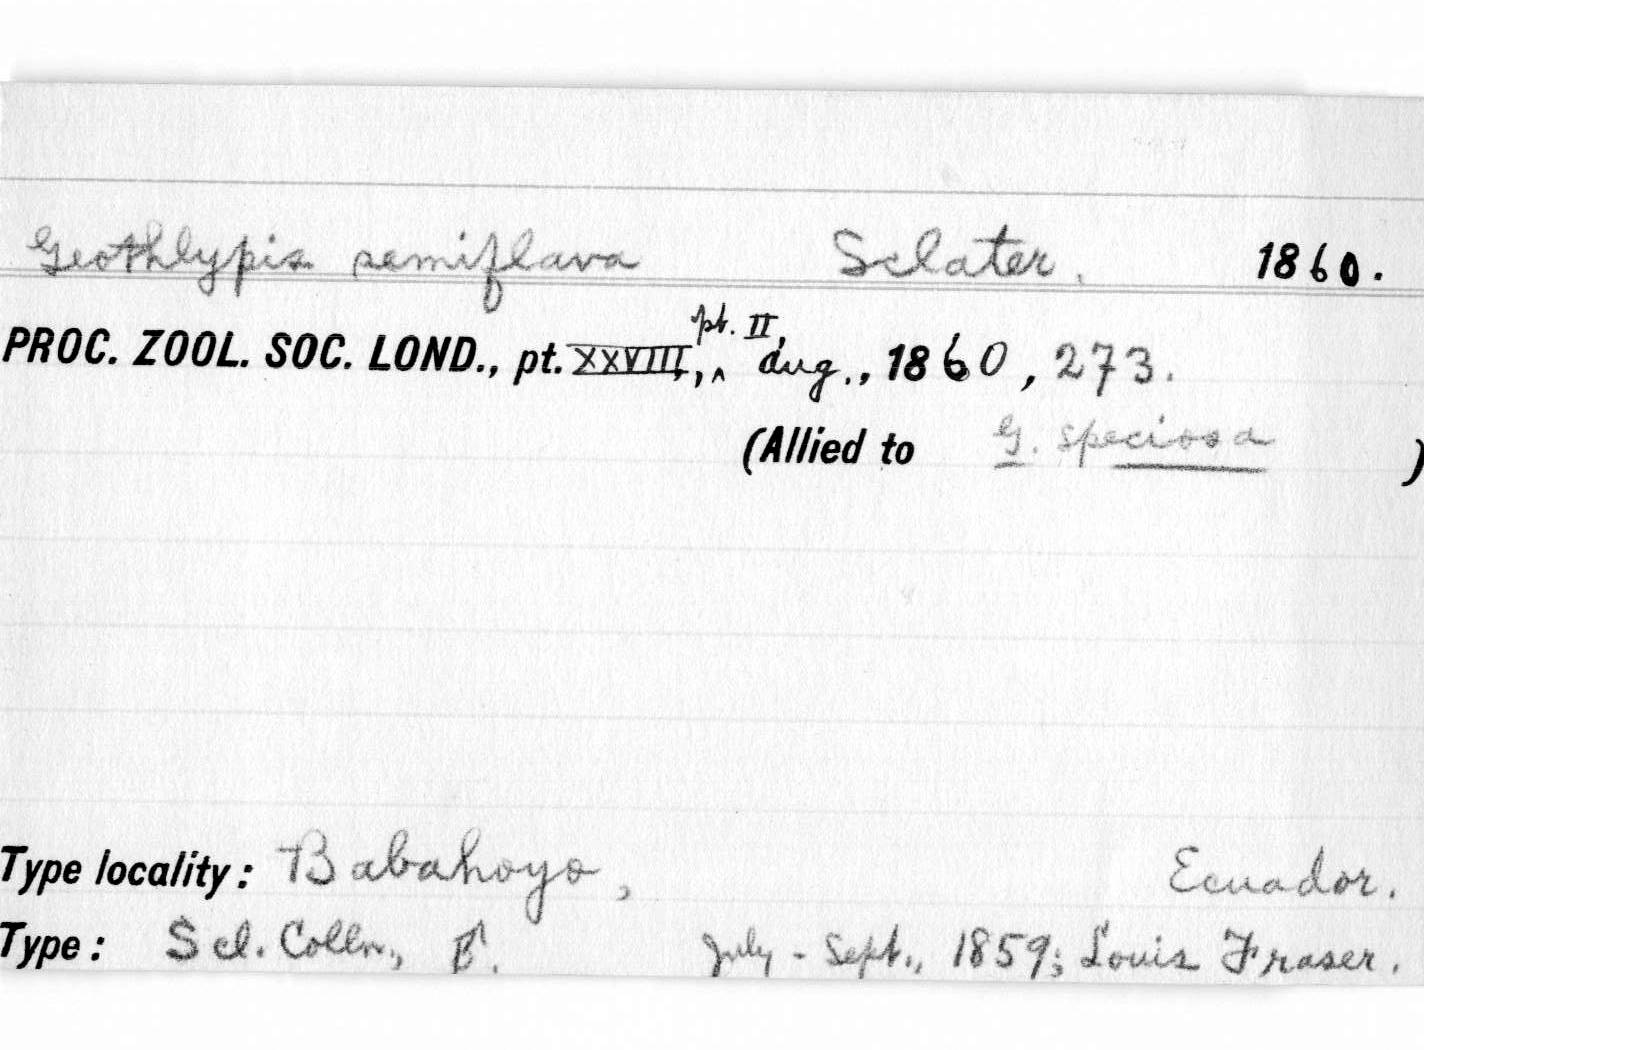 Geothlypis semiflava Sclater. 1860.
pt. II,
PROC. ZOOL. SOC. LOND., pt. XXVIII, ^ Aug., 1860, 273.
(Allied to G. speciosa )
Type locality: Babahoyo, Ecuador.
Type: Scl. Colln., July - Sept., 1859; Louis Fraser.